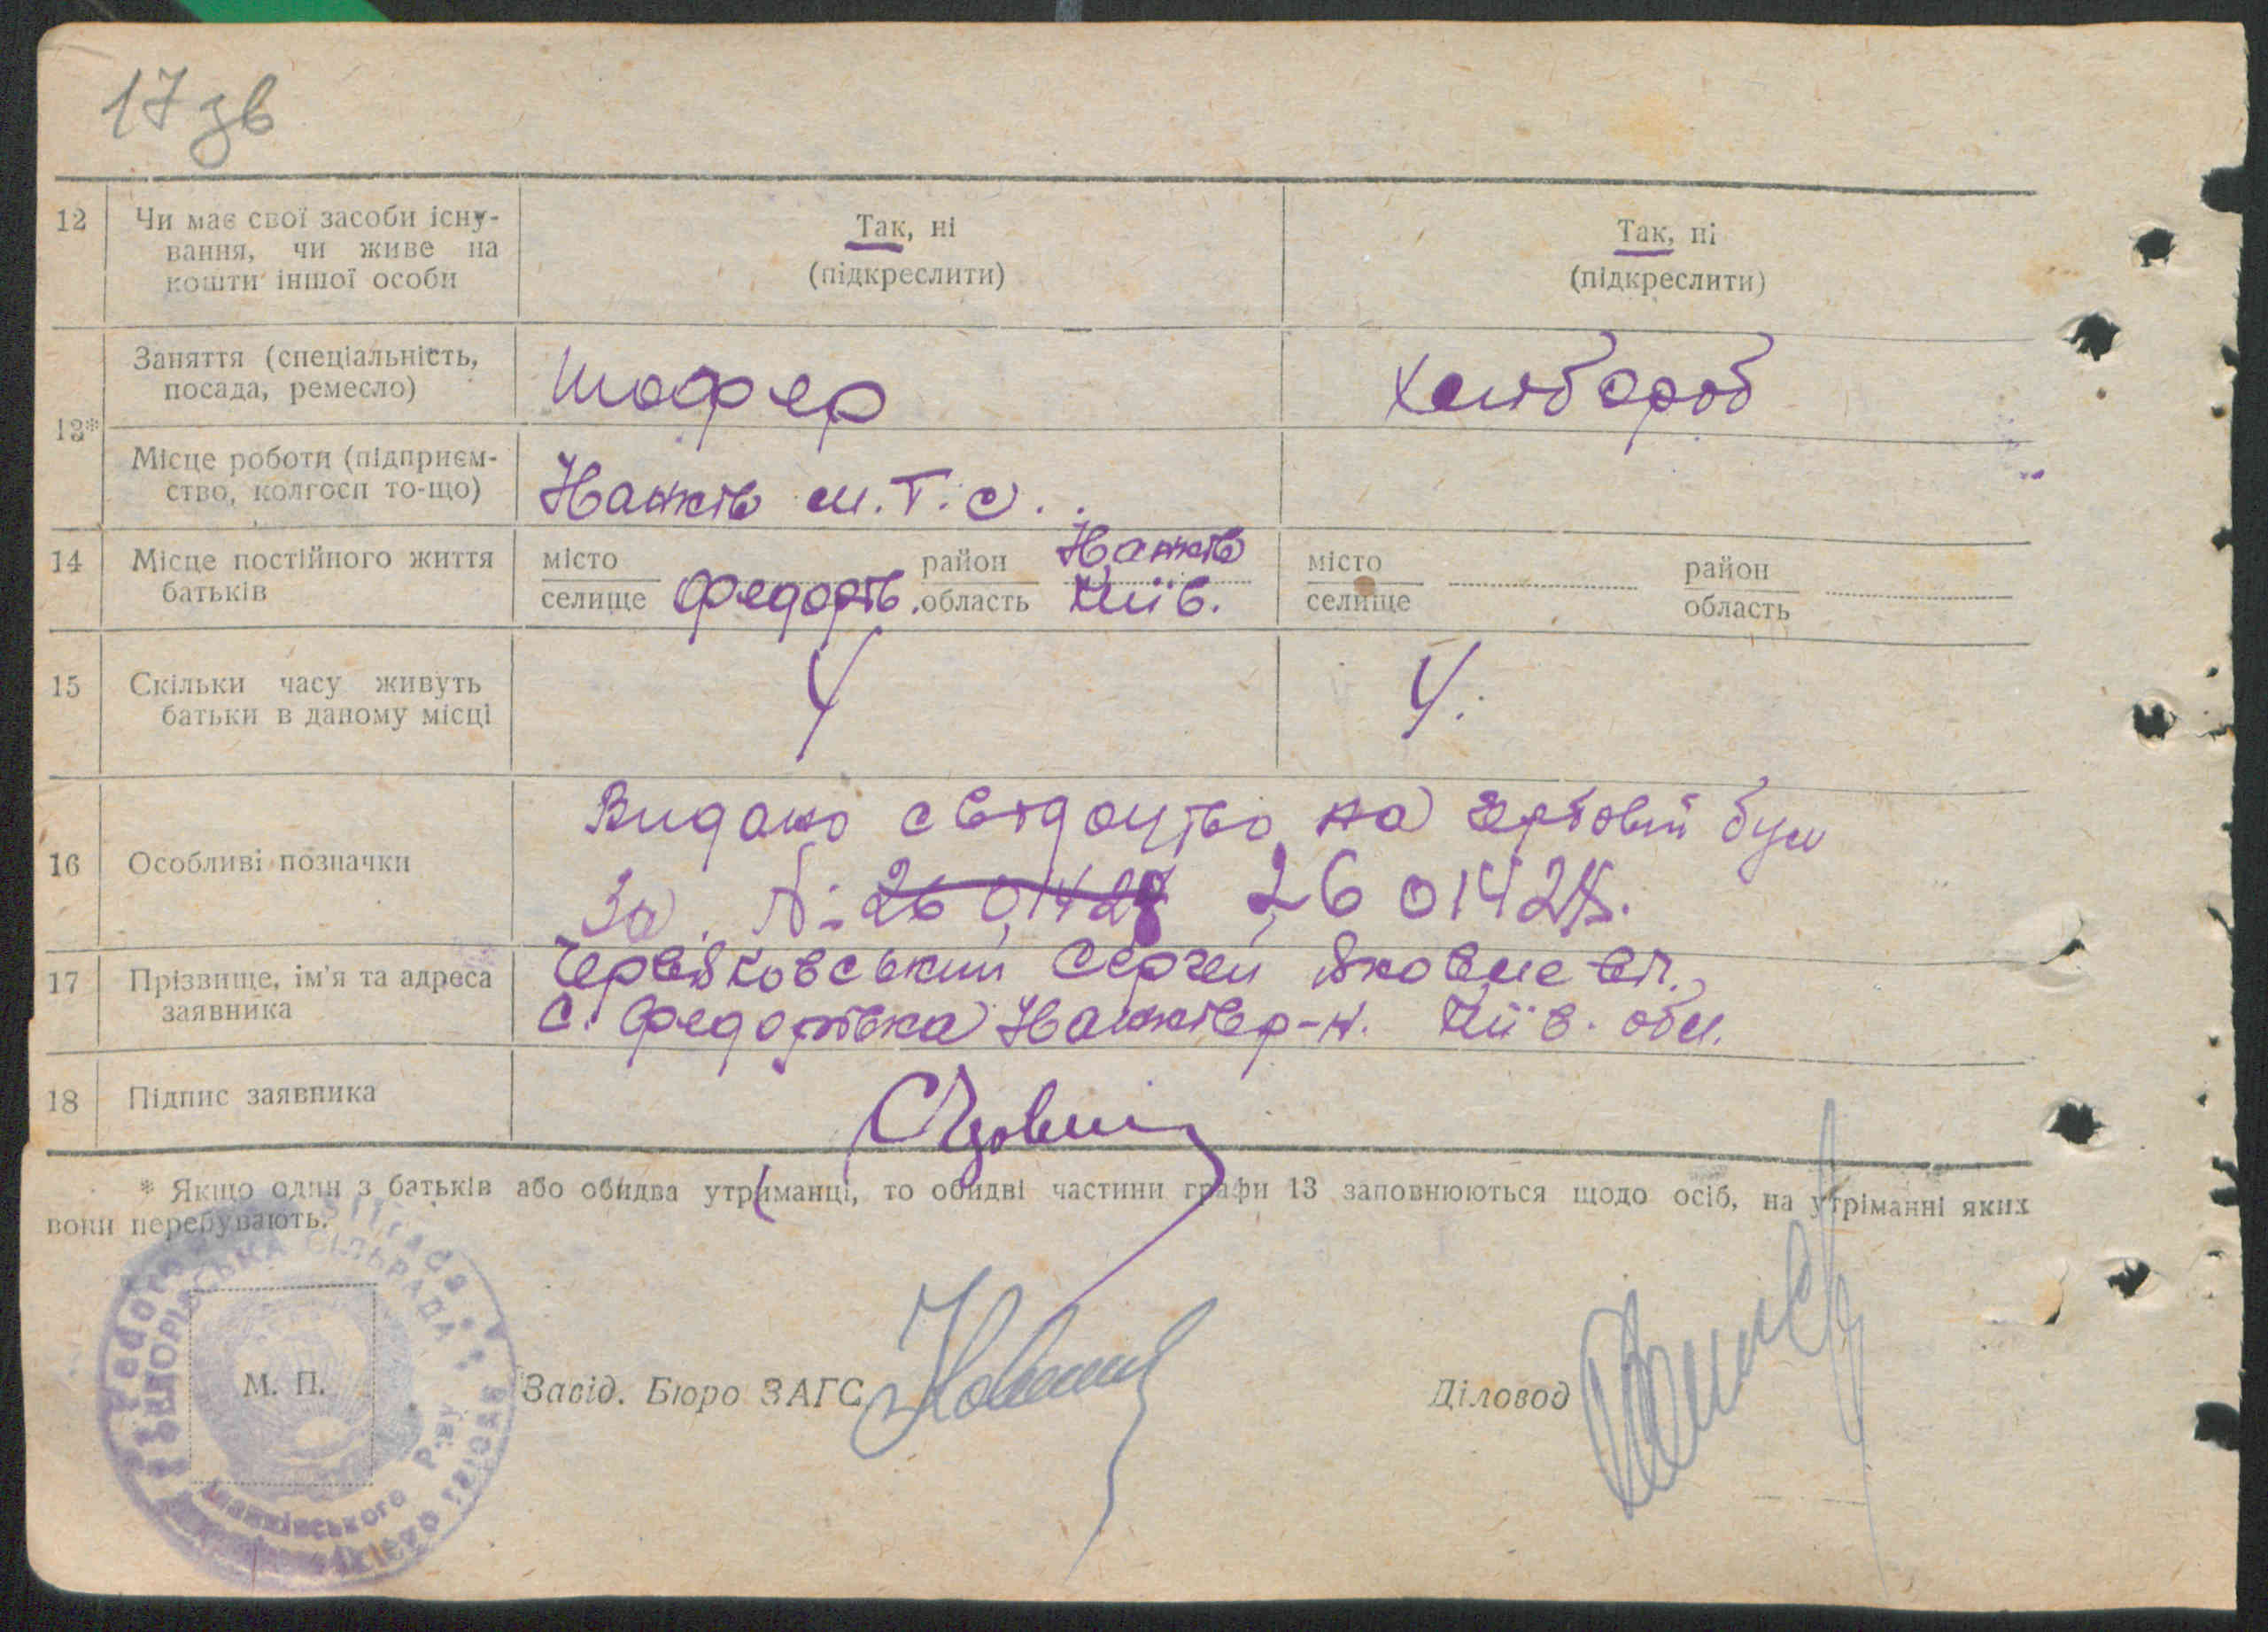 17 зв
12 Чи має свої засоби існу-
вання, чи живе на
кошти іншої особи
Так, ні
(підкреслити)
Так, ні
(підкреслити)
13*
Заняття (спеціальність,
посада, ремесло)
Шофер
Хлібороб
Місце роботи (підприєм-
ство, колгосп то-що)
Маньків М.Т.С.
14 Місце постійного життя
батьків
місто
селище Федорів.
район Маньків
область Київ.
місто
селище
район
область
15 Скільки часу живуть
батьки в даному місці
У
У.
16 Особливі позначки
Видано свідоцтво на
За № 26 01428 26 01424.
17 Прізвище, ім'я та адреса
заявника
Червяковський Сергей Яковлевич.,
С. Федорівка Маньків р-н. Київ. обл.
18 Підпис заявника
* Якщо один з батьків або обидва утриманці, то обидві частини графи 13 заповнюються щодо осіб, на утриманні яких
вони перебувають.
ФЕДОРІВСЬКА СІЛЬРАДА
Маньківського Р-ву
М. П.
Завід. Бюро ЗАГС
Діловод